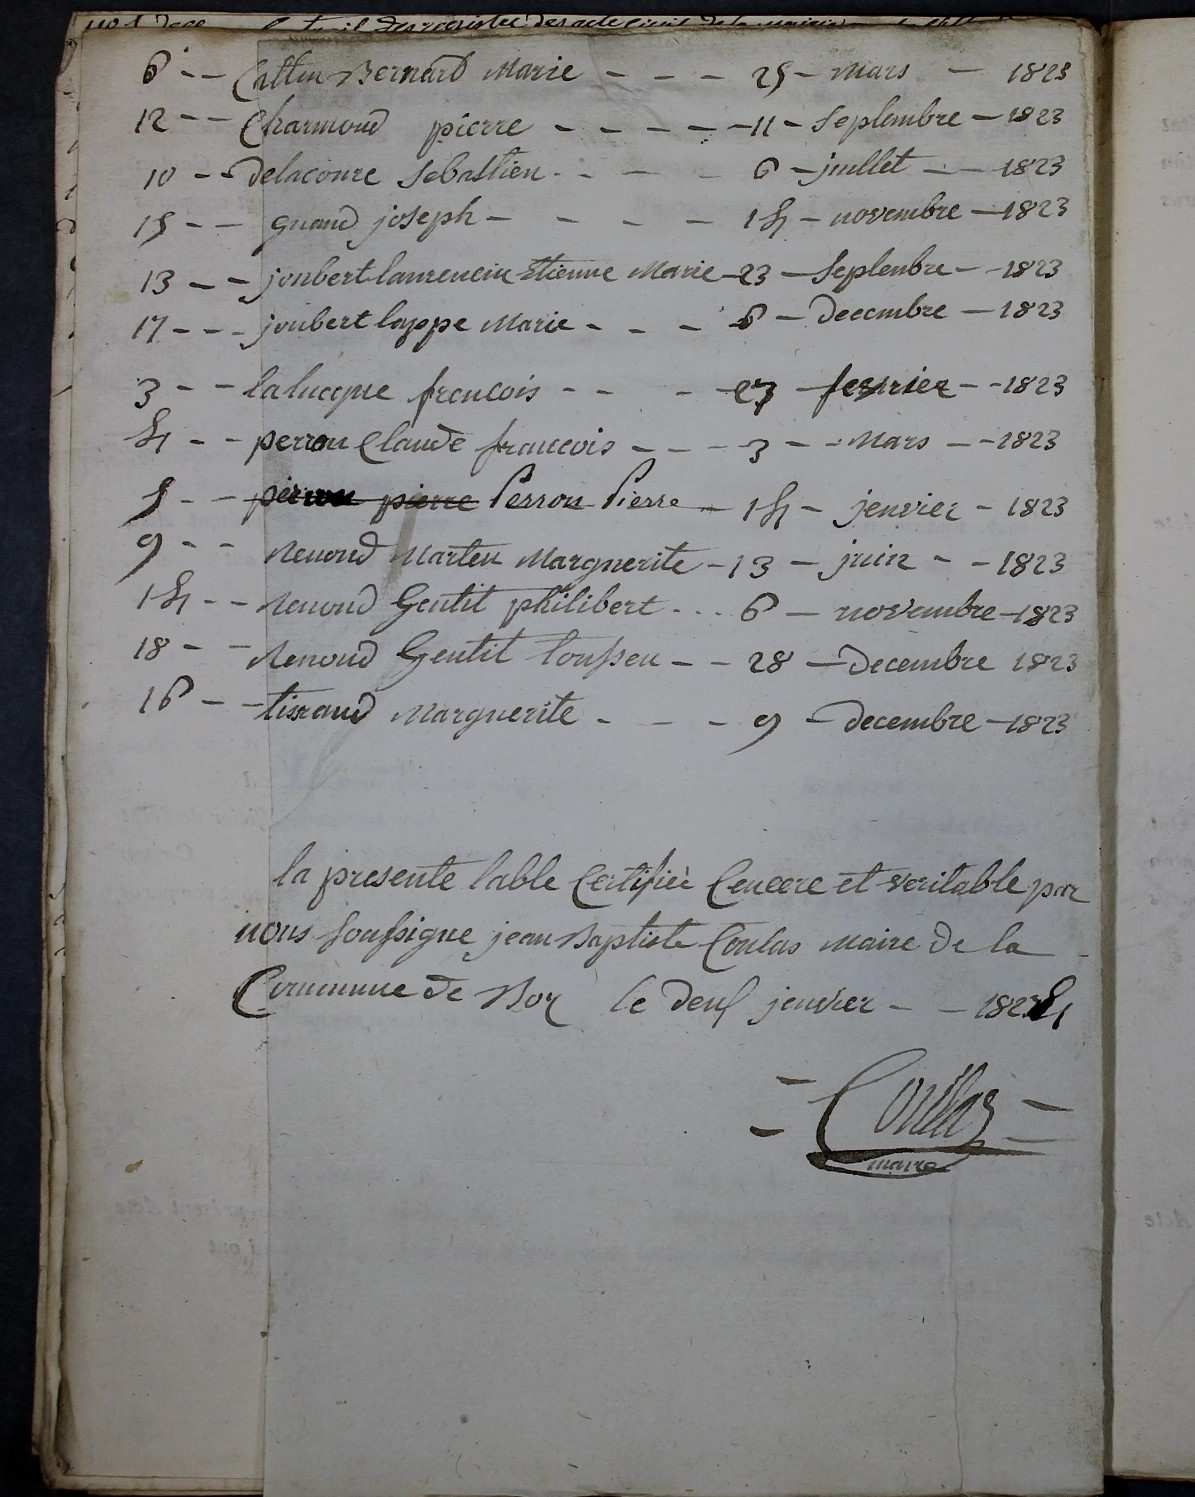 6 -- Cattin Bernard Marie - - - 25 - Mars - 1823
12 -- Charmond pierre - - - - - 11 - Septembre - 1823
10 -- delacoure Sebastien - - - - 6 - juillet - - 1823
15 -- guand joseph - - - - - 14 - novembre - 1823
13 -- joubert laurencin Etienne Marie - 23 - Septenbre - - 1823
17 --- joubert lappe Marie - - - 6 - decembre - 1823
3 -- lalucque francois - - - 27 - fevrier - - 1823
4 -- perron Claude francois - - - 3 - - Mars - - 1823
5 -- perron pierre Perron Pierre - 14 - jenvier - 1823
9 -- Renond Marten Marguerite - 13 - juin - - 1823
14 -- Renond Gentit philibert ... 6 - novembre - 1823
18 -- Renond Gentit - - 28 - Decembre 1823
16 -- tissrand Marguerite - - - 9 - decembre - 1823
la presente table Certifiée Cencere et veritable par
nous Soussigne jean Baptiste Coulas maire de la
Commune de le deux jenvier - - 1824
= Coullas =
maire